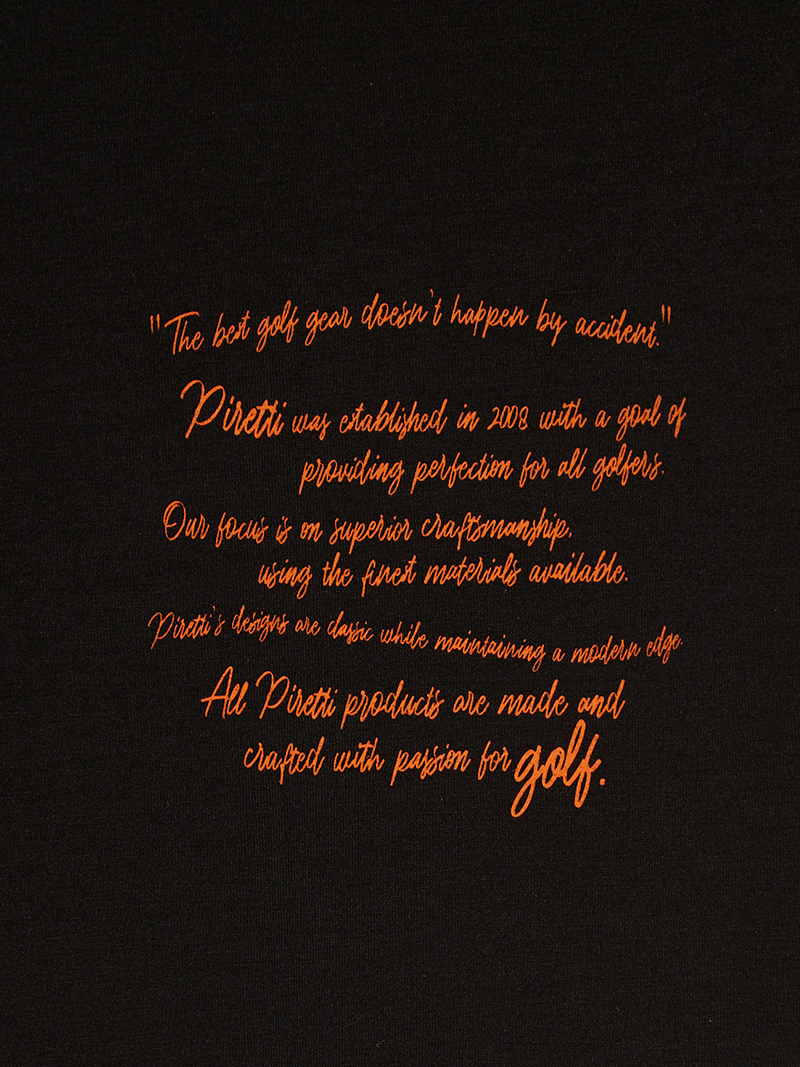 "The best golf gear doesn't happen by accident."
Piretti was established in 2008 with a goal of
providing perfection for all golfers.
Our focus is on superior craftsmanship,
using the finest materials available.
Piretti's designs are classic while maintaining a modern edge.
All Piretti products are made and
crafted with passion for golf.